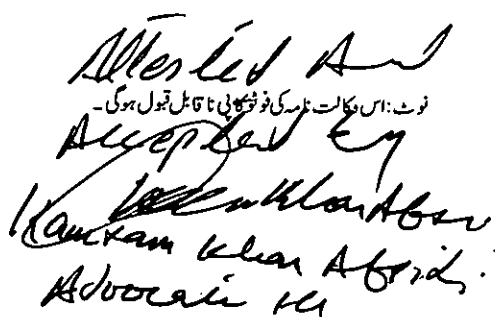 Attested And
نوٹ: اس وکالت نامہ کی فوٹو کاپی ناقابل قبول ہوگی۔
Accepted by
Khan
Kamran Khan Afridi
Advocate